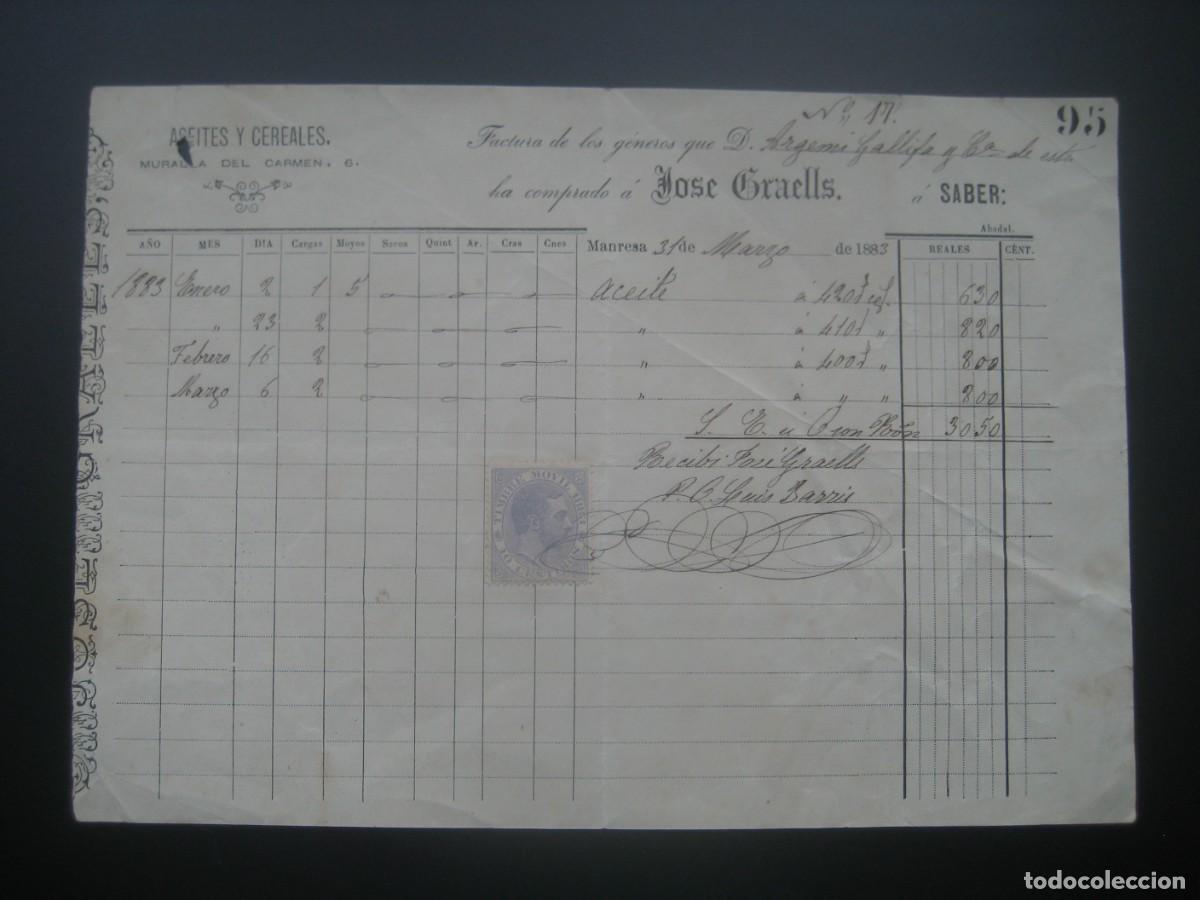 Nº 17.
95
ACEITES Y CEREALES.
MURALLA DEL CARMEN, 6.
Factura de los géneros que D. Argemi Gallifa y Cª de esta
ha comprado á Jose Graells. á SABER:
Abadal.
AÑO MES DIA Cargas Moyos Sacos Quint Ar. Cras Cnes Manresa 31 de Marzo de 1883 REALES CÉNT.
1883 Enero 2 1 5 aceite á 420 630
" 23 2 " á 410 " 820
Febrero 16 2 " á 400 " 800
Marzo 6 2 " á " " 800
S. E. ú O son Rón 3050
Recibi José Graells
P. O. Luis Barris
TIMBRE MOVIL 1883
10 CENTS. DE
JOSE GRAELLS
todocoleccion